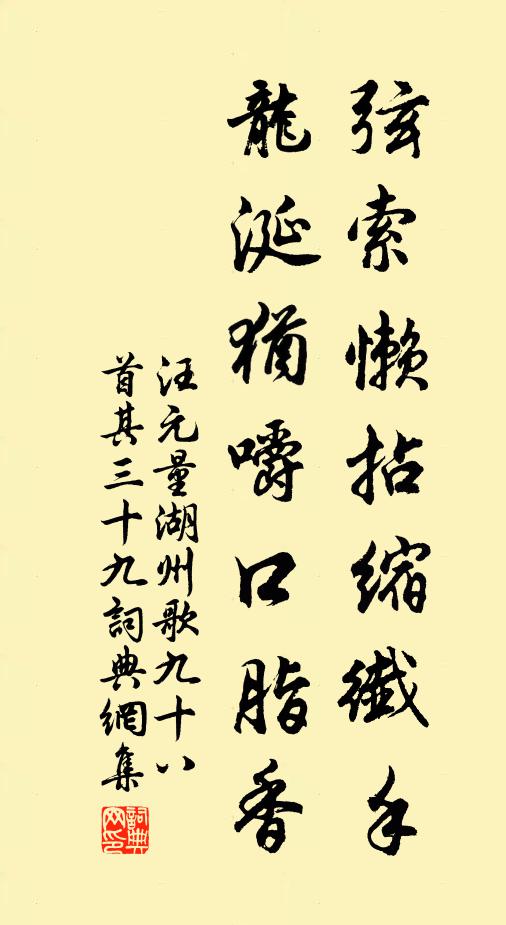 弦索懶拈縮纖手
龍涎猶嚼口脂香
汪元量湖州歌九十八
首其三十九詞典網集
詞典
网印